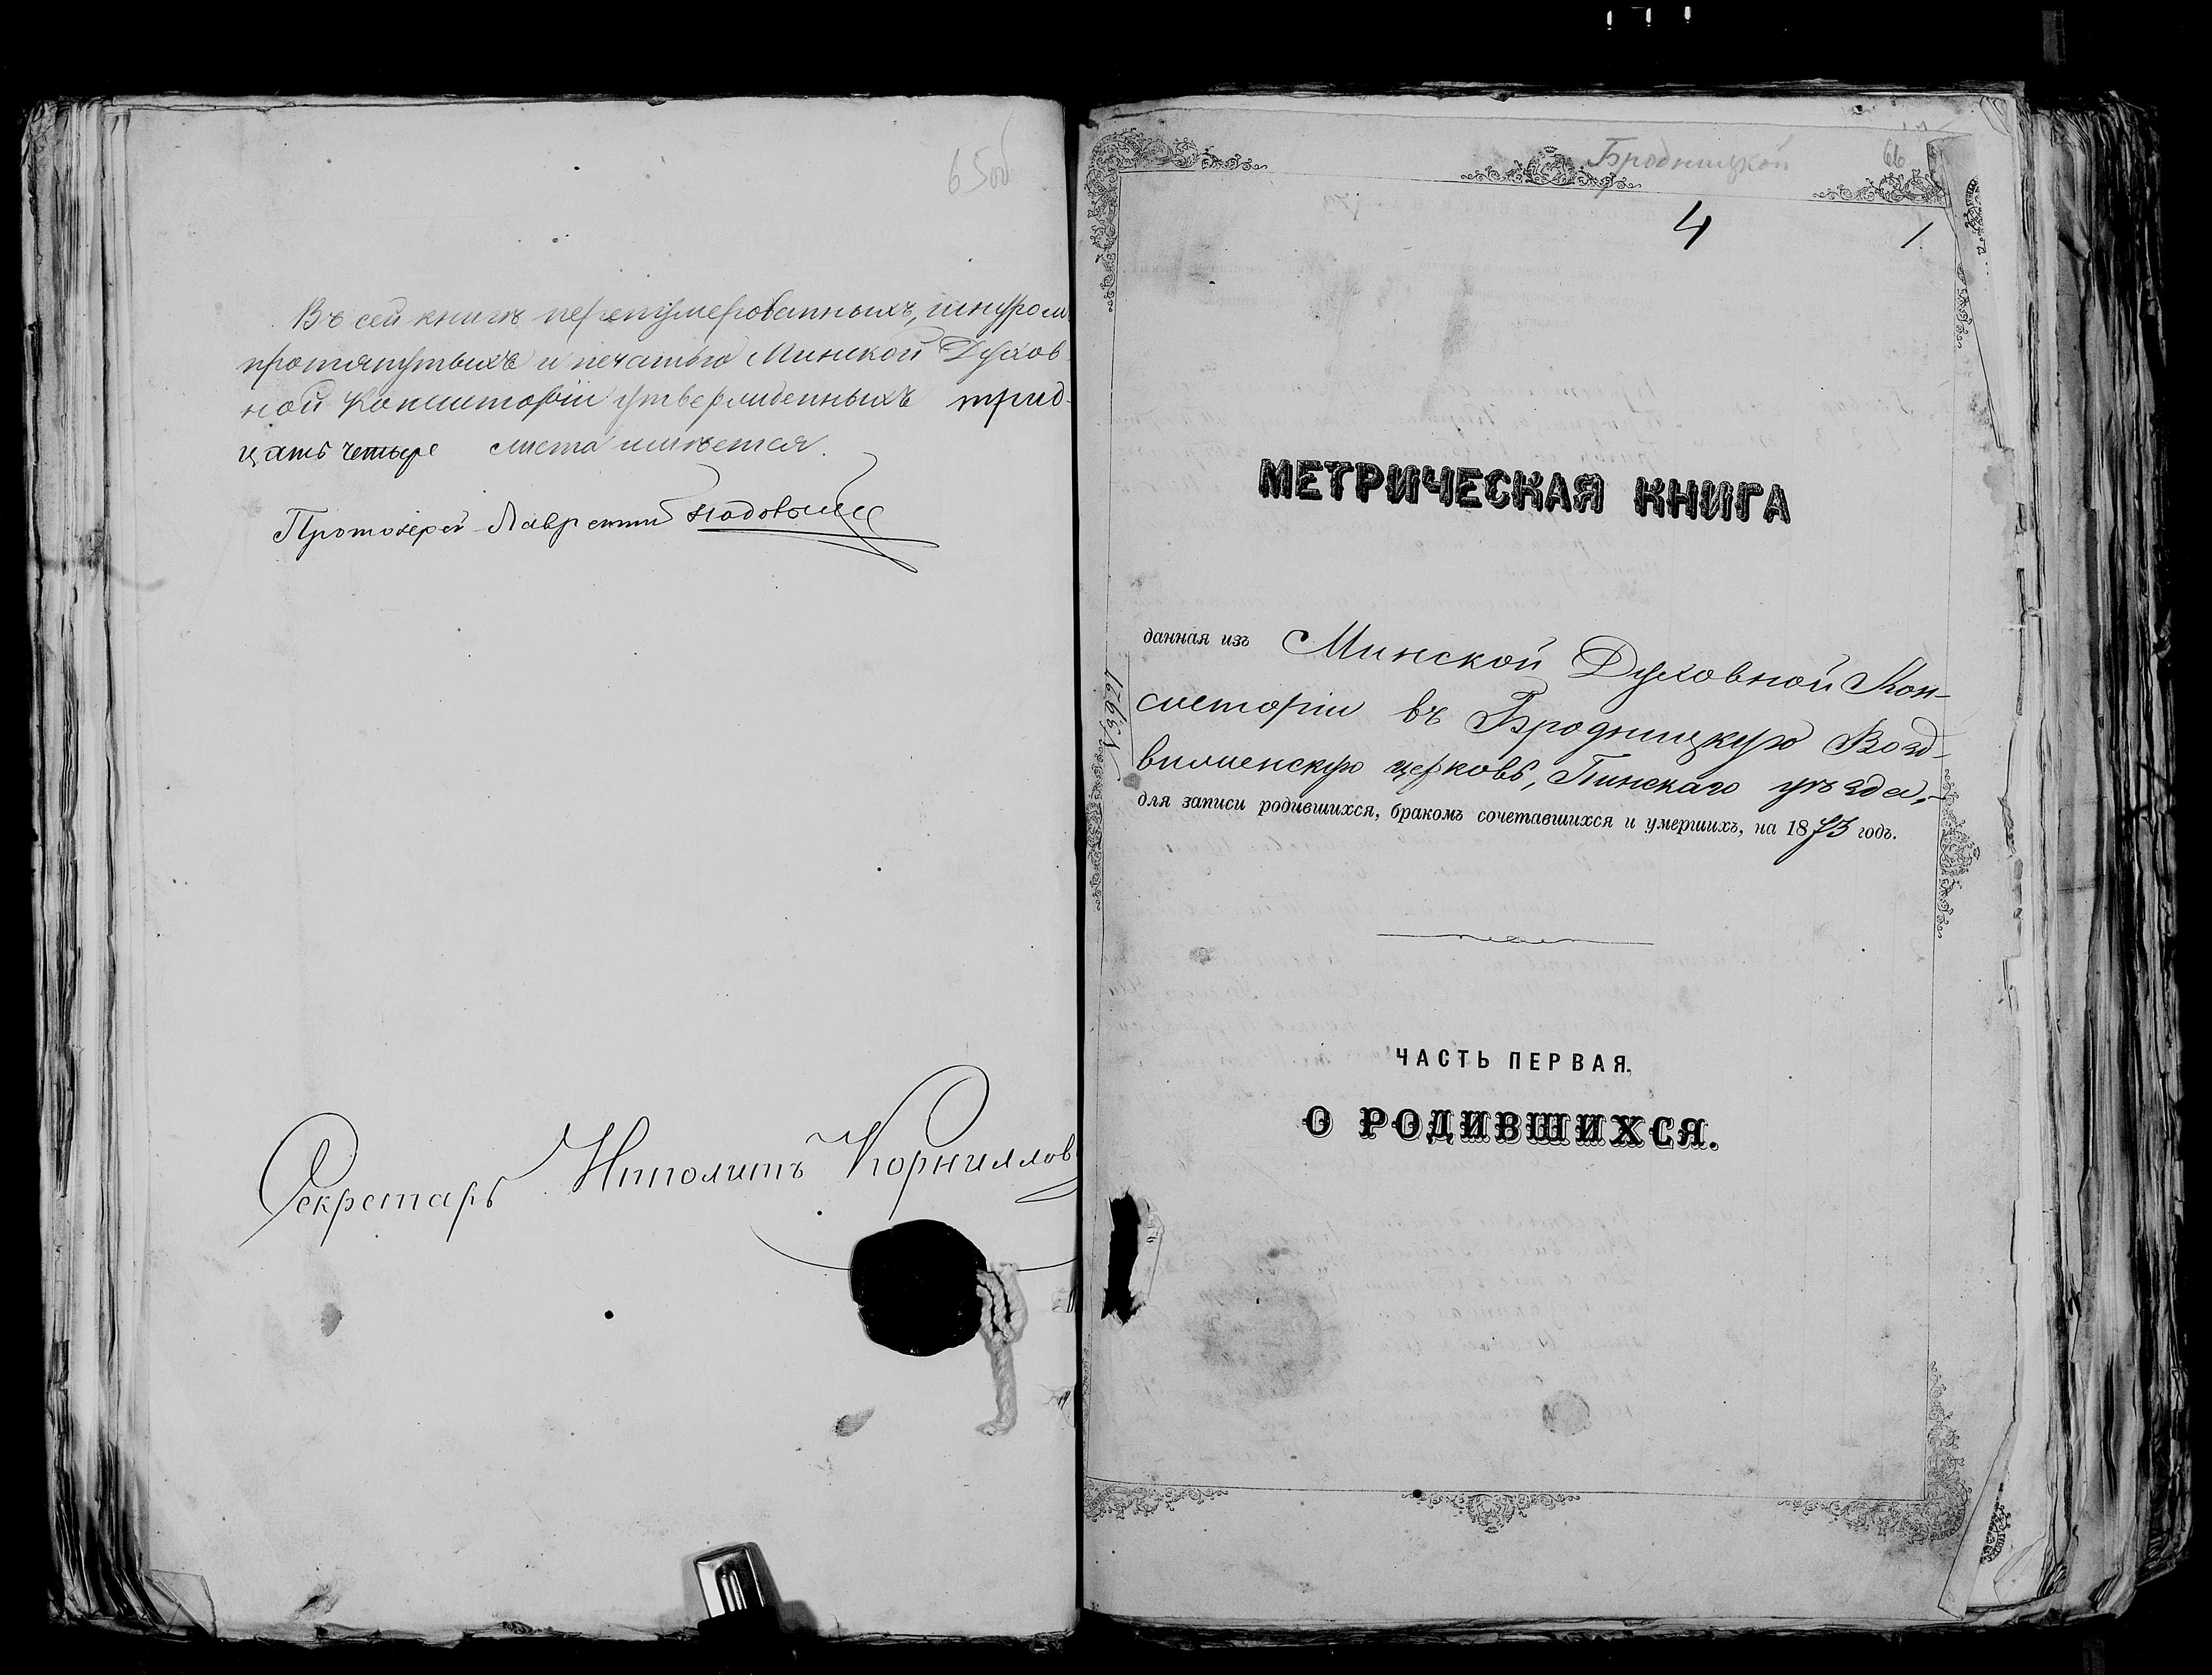 65об
Въ сей книгѣ перенумерованныхъ, шнуром
протянутыхъ и печатью Минской Духов
ной Консисторіи утвержденныхъ трид-
цать четыре листа имѣется.
Протоіерей Лаврентій
Секретарь Ипполитъ Корниллов
Бродницкой
66
4
1
МЕТРИЧЕСКАЯ КНИГА
данная изъ Минской Духовной Кон-
систоріи въ Бродницкую Возд-
виженскую церковь, Пинскаго уѣзда,
для записи родившихся, бракомъ сочетавшихся и умершихъ, на 1873 годъ.
ЧАСТЬ ПЕРВАЯ.
О РОДИВШИХСЯ.